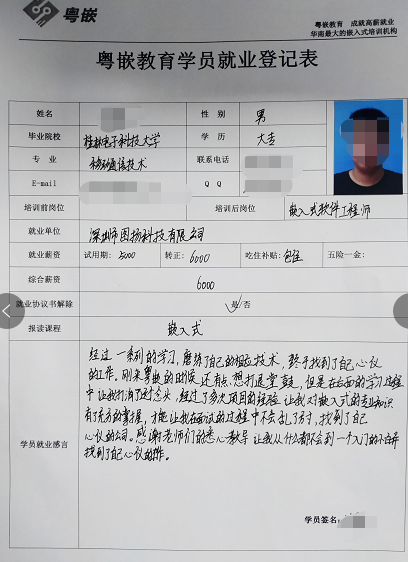 粤嵌
粤嵌教育 成就高薪就业
华南最大的嵌入式培训机构
粤嵌教育学员就业登记表
姓名 性别 男
毕业院校 桂林电子科技大学 学历 大专
专业 移动通信技术 联系电话
E-mail Q Q
培训前岗位 培训后岗位 嵌入式软件工程师
就业单位 深圳市因扬科技有限公司
就业薪资 试用期: 5000 转正: 6000 吃住补贴: 包住 五险一金:
综合薪资 6000
就业协议书解除 是/否
报读课程 嵌入式
经过一系列的学习,磨练了自己的相应技术,终于找到了自己心仪
的工作。刚来粤嵌的时候还有点想打退堂鼓,但是在后面的学习过程
中让我打消了这个念头,经过了多次项目的经验让我对嵌入式的专业知识
有了充分的掌握,才能让我在面试的过程中不会乱了方寸,找到了自己
心仪的公司。感谢老师们的悉心教导让我从什么都不会到一个入门的小白并
找到了自己心仪的工作。
学员就业感言
学员签名: